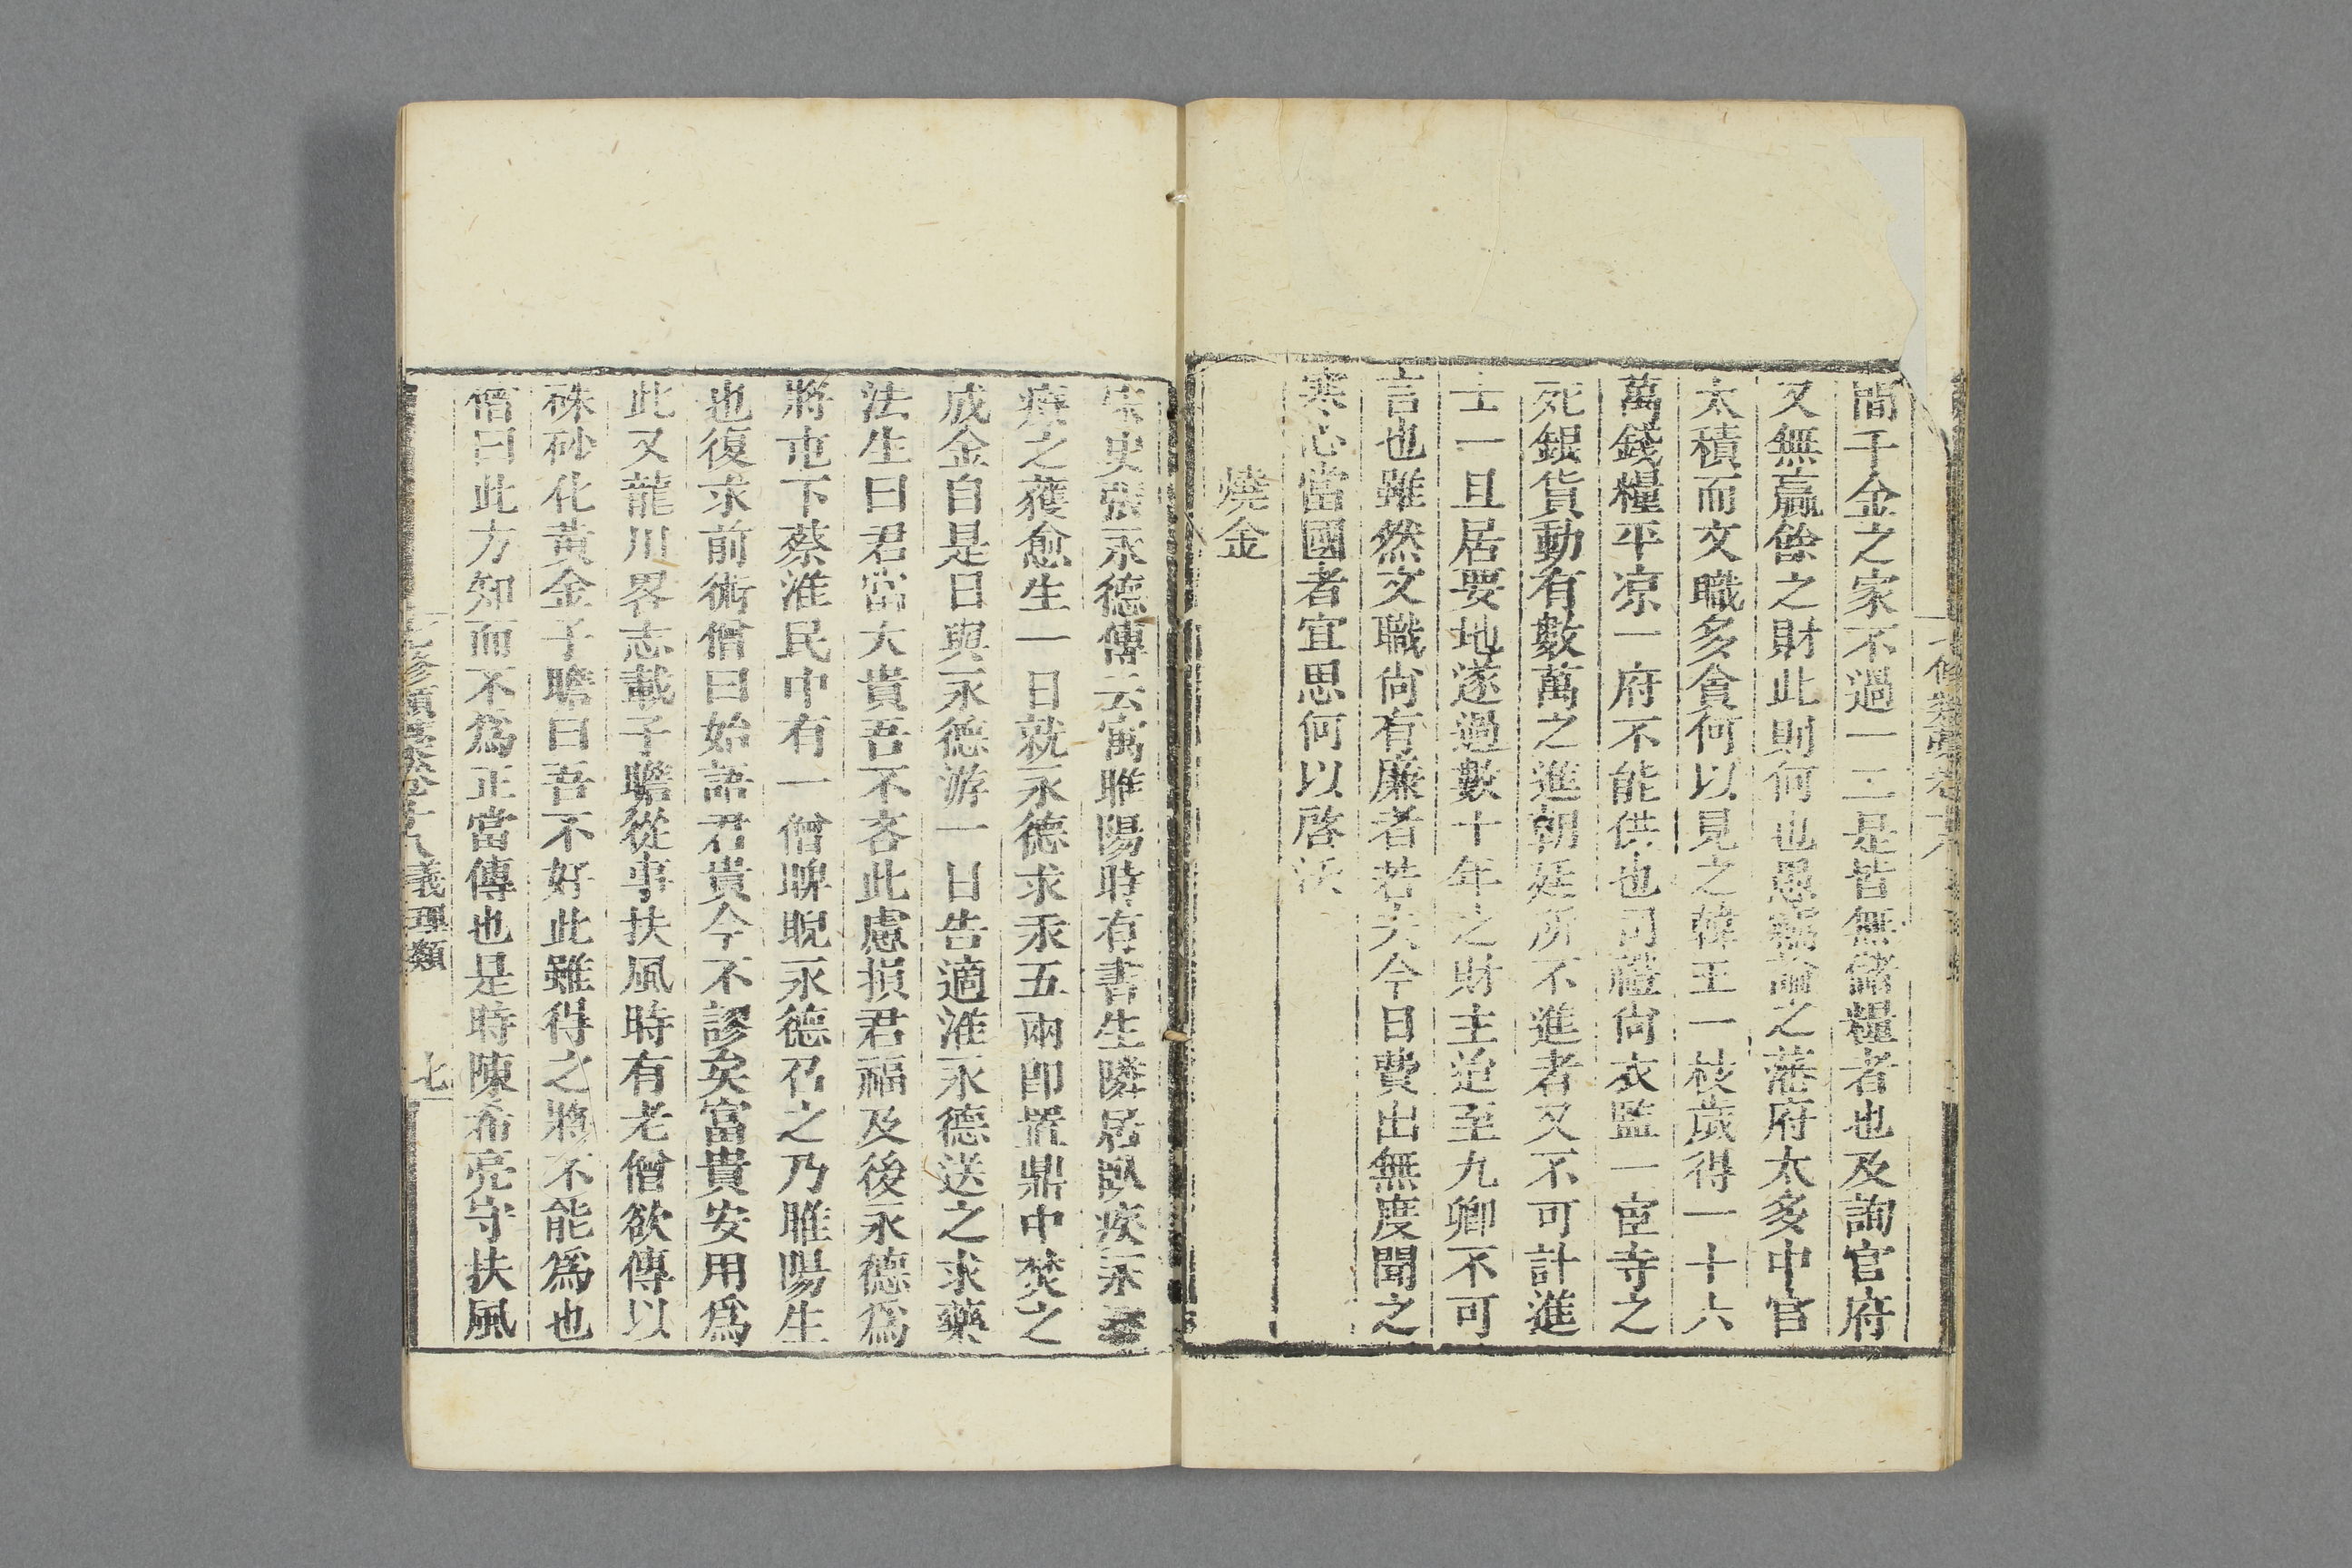 間千金之家不過一二是皆無儲糧者也及詢官府
又無贏餘之財此則何也愚竊論之藩府太多中官
太積而文職多貪何以見之韓王一枝歲得一十六
萬錢糧平凉一府不能供也司禮尚衣監一宦寺之
死銀貨動有數萬之進朝廷所不進者又不可計進
士一旦居要地遂過數十年之財主迨至九卿不可
言也雖然文職尚有廉者若夫今日費出無度聞之
寒心當國者宜思何以啓沃
燒金
宋史張永德傳云寓睢陽時有書生隣居臥疾永
療之獲愈生一日就永德求汞五兩即置鼎中焚之
成金自是日與永德游一日告適淮永德送之求藥
法生曰君當大貴吾不吝此慮損君福及後永德爲
將屯下蔡淮民中有一僧睥睨永德召之乃睢陽生
也復求前術僧曰始語君貴今不謬矣富貴安用爲
此又龍川畧志載子瞻從事扶風時有老僧欲傳以
硃砂化黃金子瞻曰吾不好此雖得之將不能爲也
僧曰此方知而不爲正當傳也是時陳希亮守扶風
七修類藁卷十八義理類 七